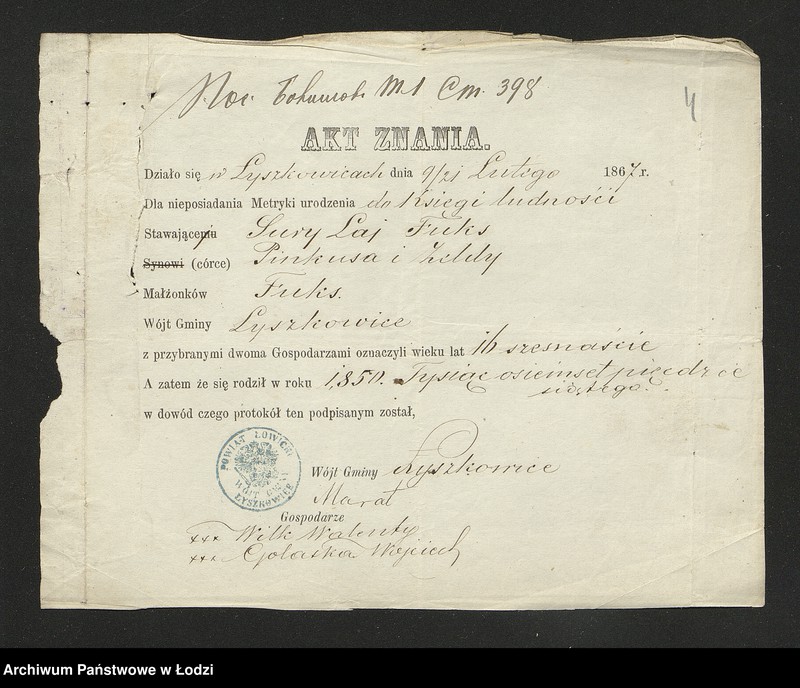 M1 Cm. 398
4
AKT ZNANIA.
Działo się w Lyszkowicach dnia 9/21 Lutego 1867 r.
Dla nieposiadania Metryki urodzenia do Księgi ludności
Stawającej Sury Laj Fuks
Synowi (córce) Pinkusa i Zeldy
Małżonków Fuks.
Wójt Gminy Lyszkowice
z przybranymi dwoma Gospodarzami oznaczyli wieku lat 16 szesnaście
A zatem że się rodził w roku 1,850. Tysiąc osiemset pięcdzie
siątego.
w dowód czego protokół ten podpisanym został,
POWIAT ŁOWICKI
WÓJT GMINY
ŁYSZKOWICE
Wójt Gminy Lyszkowice
Marat
Gospodarze
xxx Wilk Walenty
xxx Golaska Wojciech
Archiwum Państwowe w Łodzi